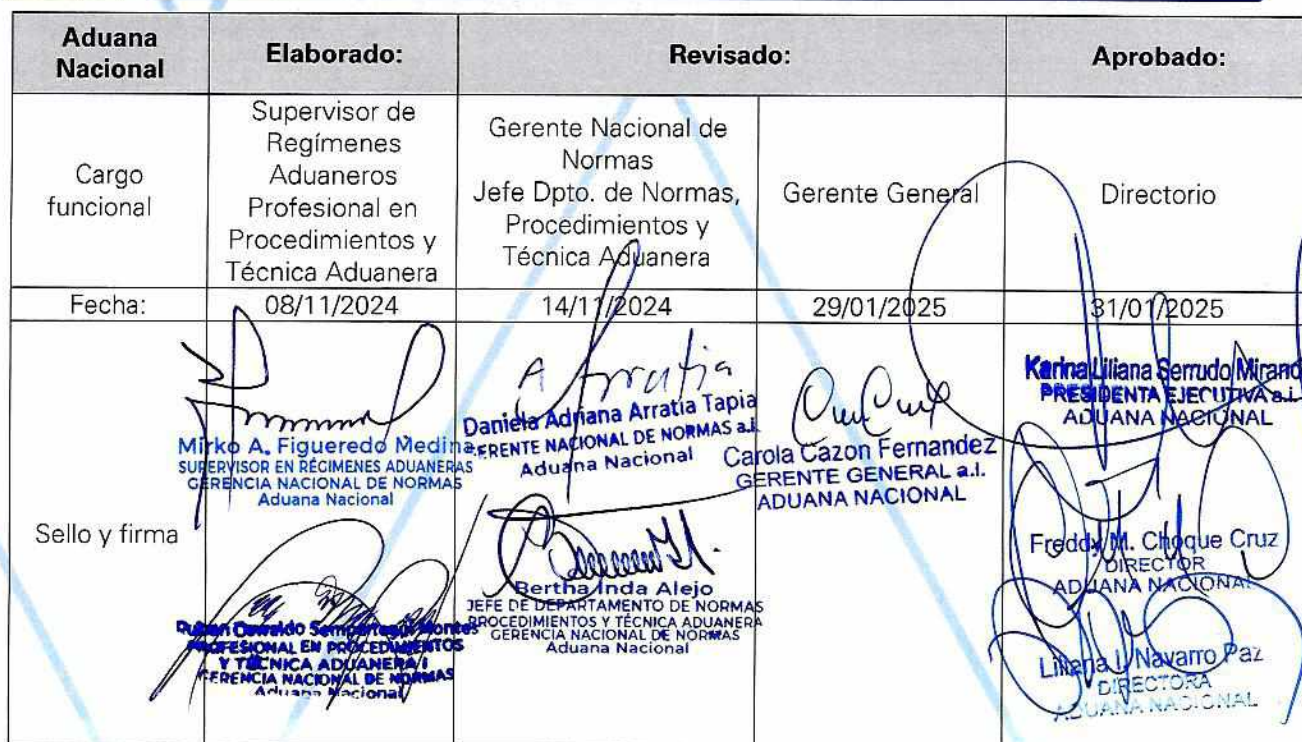 Aduana Nacional
Elaborado:
Revisado:
Aprobado:
Cargo funcional
Supervisor de
Regímenes
Aduaneros
Profesional en
Procedimientos y
Técnica Aduanera
Gerente Nacional de
Normas
Jefe Dpto. de Normas,
Procedimientos y
Técnica Aduanera
Gerente General
Directorio
Fecha:
08/11/2024
14/11/2024
29/01/2025
31/01/2025
Sello y firma
Mirko A. Figueredo Medina
SUPERVISOR EN RÉGIMENES ADUANERAS
GERENCIA NACIONAL DE NORMAS
Aduana Nacional
PROFESIONAL EN PROCEDIMIENTOS
Y TÉCNICA ADUANERA I
GERENCIA NACIONAL DE NORMAS
Aduana Nacional
A Arratia
Daniela Adriana Arratia Tapia
GERENTE NACIONAL DE NORMAS a.i.
Aduana Nacional
Bertha Inda Alejo
JEFE DE DEPARTAMENTO DE NORMAS
PROCEDIMIENTOS Y TÉCNICA ADUANERA
GERENCIA NACIONAL DE NORMAS
Aduana Nacional
Carola Cazon Fernandez
GERENTE GENERAL a.i.
ADUANA NACIONAL
Karina Liliana Serrudo Mirand
PRESIDENTA EJECUTIVA a.i.
ADUANA NACIONAL
Freddy M. Choque Cruz
DIRECTOR
ADUANA NACIONAL
Liliana I. Navarro Paz
DIRECTORA
ADUANA NACIONAL